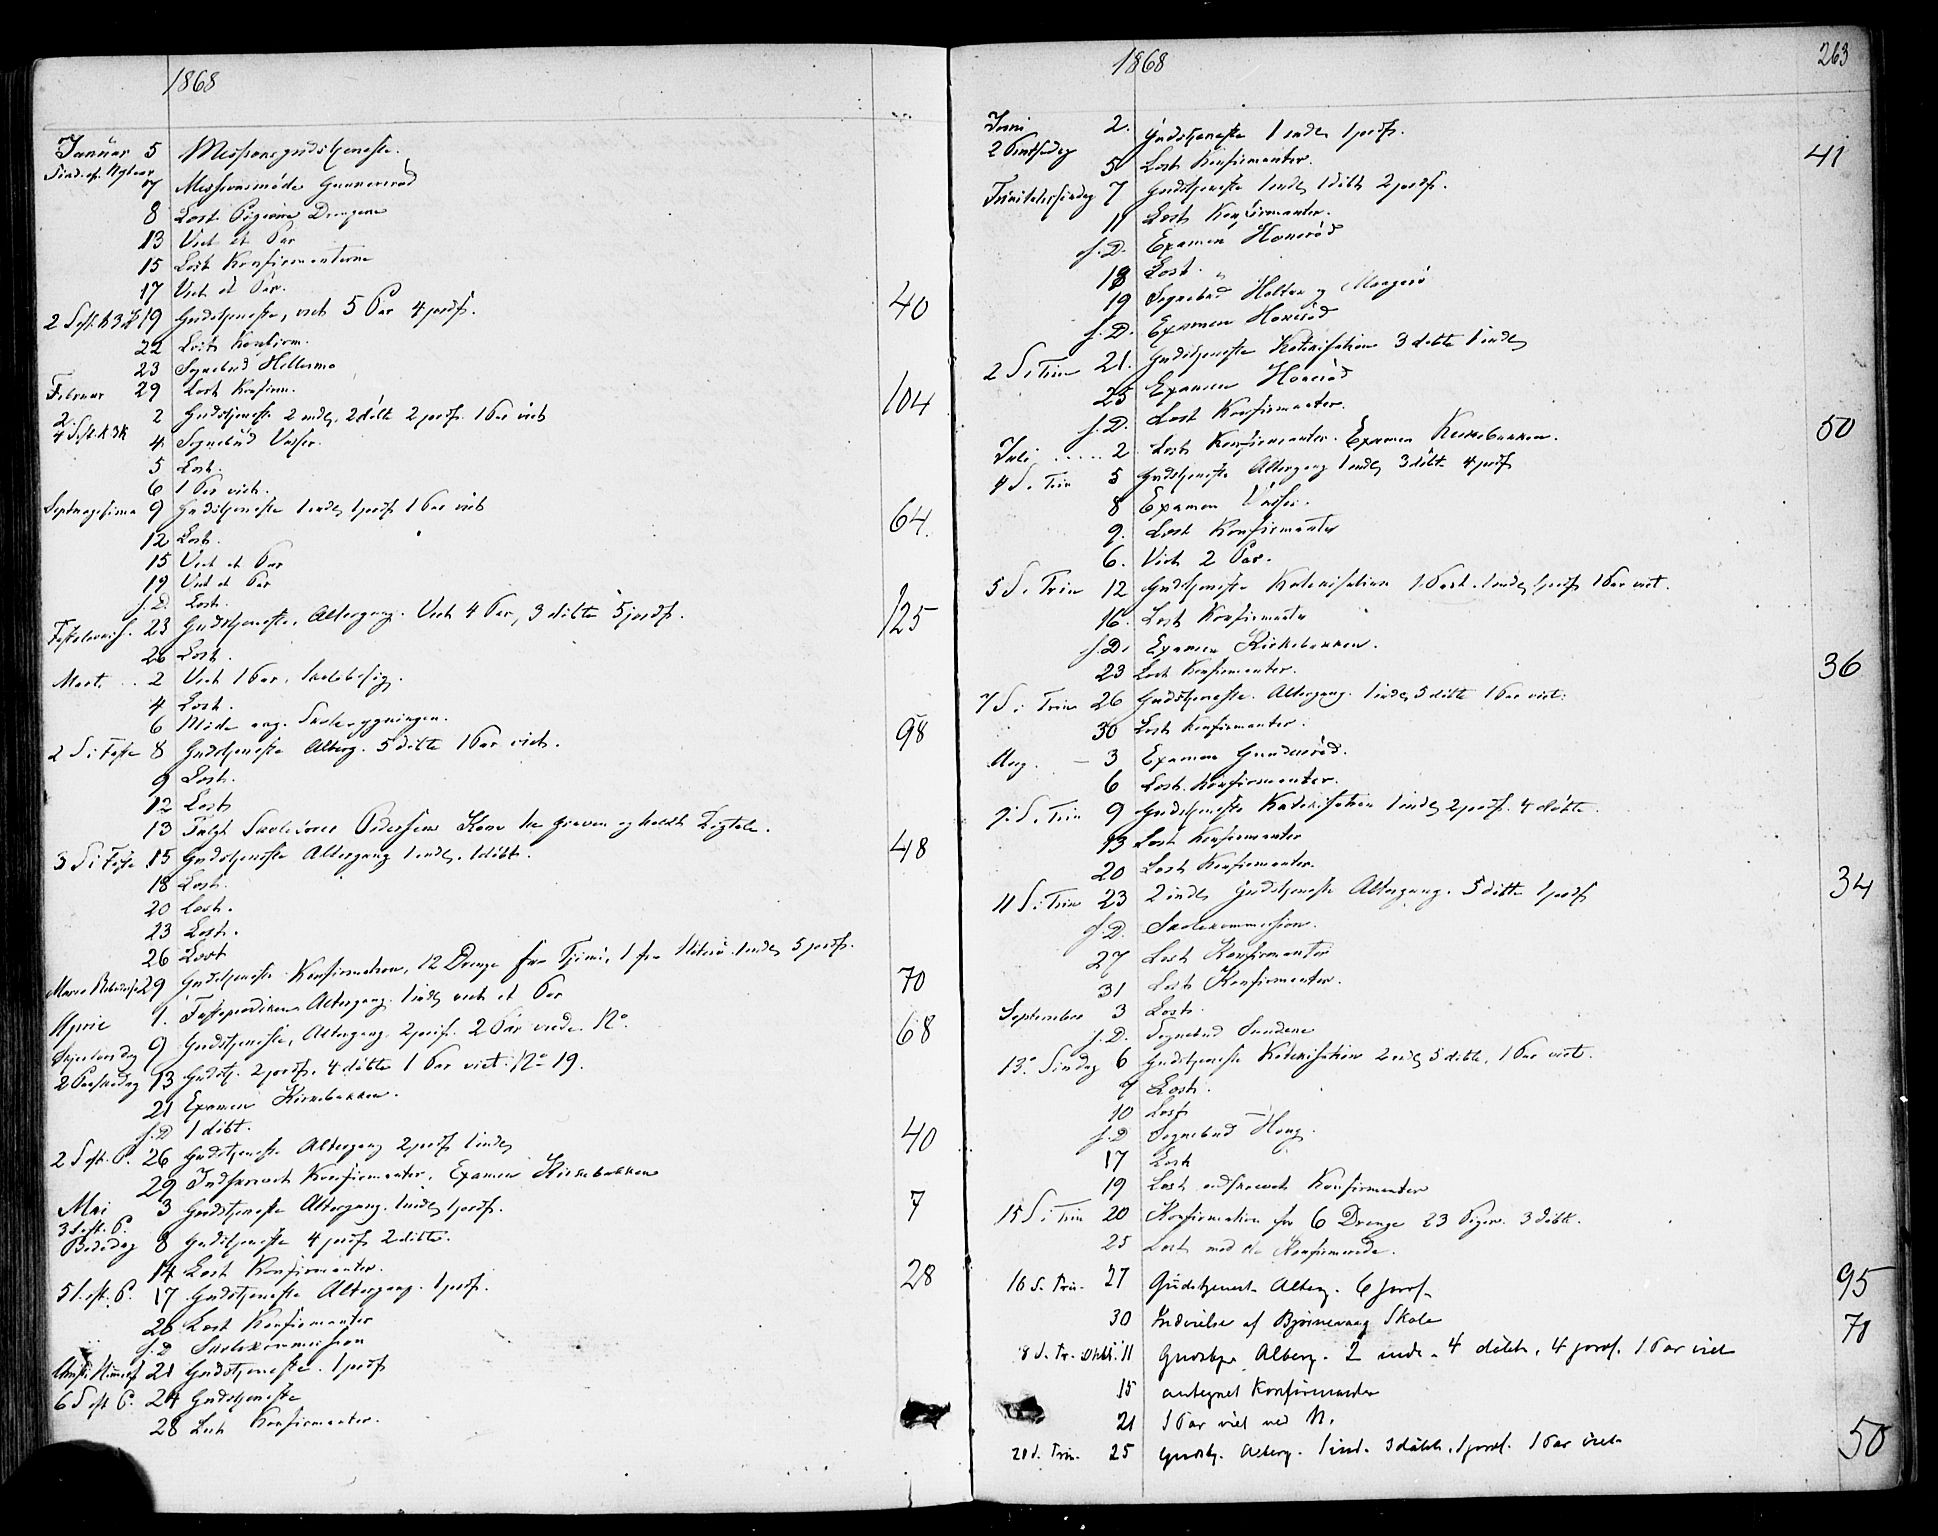 1868
Januar 5 Missionsgudstjeneste.
Sønd. eft. Nytaar
7 Missionsmøde Gunnerød
8 Læst Pigerne Drengene
13 Viet et Par
15 Læst Konfirmanterne
17 Viet et Par.
2 S. eft. H 3 K 19 Gudstjeneste, viet 5 Par 4 jordf. 40
22 Læst Konfirm.
23 Sognebud Hellesmo
29 Læst Konfirm.
Februar 2 Gudstjeneste 2 indl. 2 døbte 2 jordf. 1 Par viet 104
4 S. eft. H 3 K
4 Sognebud Vasser.
5 Læst.
6 1 Par viet.
Septuagesima 9 Gudstjeneste 1 indl. 1 jordf 1 Par viet 64.
12 Læst.
15 Viet et Par
19 Viet et Par
s. D. Læst.
Fastelavns. 23 Gudstjeneste, Altergang. Viet 4 Par, 3 døbte 5 jordf. 125
26 Læst.
Mart. .. 2 Viet 1 Par. Skolebesøg.
4 Læst.
6 Møde ang. Skolebygningen.
2 S i Faste 8 Gudstjeneste Alterg. 5 døbte 1 Par viet. 98
9 Læst.
12 Læst
13 Fulgt Skolelærer Pedersens Kone til Graven og holdt Ligtale.
3 S i Faste 15 Gudstjeneste Altergang 1 indl. 1 døbt. 48
18 Læst.
20 Læst.
23 Læst.
26 Læst
Mariæ Bebudelse 29 Gudstjeneste Konfirmation, 12 Drenge fra Tjømø, 1 fra Nøterø. 1 indl. 5 jordf. 70
April 1. Fasteprædiken Altergang. 1 indl. viet et Par
Skjertorsdag 9 Gudstjeneste, Altergang. 2 jordf. 2 Par viede. No. 68
2 Paaskedag 13 Gudstj. 2 jordf. 4 døbte 1 Par viet. No 19.
21 Examen Kirkebakken.
s. D 1 døbt.
2 S eft. P. 26 Gudstjeneste Altergang 2 jordf 1 indl. 40
29 Indskrevet Konfirmanter. Examen Kirkebakken
Mai 3 Gudstjeneste Altergang. 1 indl. 1 jordf. 7
3 S eft. P.
Bededag 8 Gudstjeneste 4 jordf 2 døbte.
14 Læst Konfirmanter.
5 S. eft. P. 17 Gudstjeneste Altergang. 1 jordf. 28
20 Læst Konfirmanter
s. D Skolekommission
Christi Himmelf 21 Gudstjeneste. 1 jordf
6 S eft P. 24 Gudstjeneste
28 Læst Konfirmanter.
1868 263
Juni 2. Gudstjeneste 1 indl. 1 jordf.
2 Pintsedag
5 Læst Konfirmanter. 41
Trinitatissøndag 7 Gudstjeneste 1 indl. 1 døbt 2 jordf.
11 Læst Konfirmanter.
s. D. Examen Hønerød
18 Læst. "
19 Sognebud Holten og Maagerø
s. D. Examen Hønerød
2 S. i Trin 21. Gudstjeneste Katekisation 3 døbte 1 indl.
25 Examen Hønerød
s. D. Læst Konfirmanter.
Juli ..... 2 Læst Konfirmanter. Examen Kirkebakken. 50
4 S. i Trin 5 Gudstjeneste Altergang 1 indl. 3 døbte 4 jordf
8 Examen Vasser.
9. Læst Konfirmanter
6. Viet 2 Par.
5 S. i Trin 12 Gudstjeneste Katekisation 1 indl. 1 jordf. 1 Par viet.
16. Læst Konfirmanter
s. D. Examen Kirkebakken.
23 Læst Konfirmanter. 36
7 S i Trin 26 Gudstjeneste. Altergang. 1 indl. 5 døbte 1 Par viet.
30 Læst Konfirmanter.
Aug. — 3 Examen Gunnerød.
6 Læst Konfirmanter.
9. S. i Trin 9 Gudstjeneste Katekisation 1 indl. 2 jordf. 4 døbte.
13 Læst Konfirmanter
20 Læst Konfirmanter.
11 S. i Trin 23 2 indl. Gudstjeneste Altergang. 5 døbte 1 jordf 34
s. D. Skolekommission.
27 Læst Konfirmanter
31 Læst Konfirmanter.
September 3 Læst.
s. D. Sognebud Sundene
13. Søndag 6 Gudstjeneste Katekisation 2 indl. 5 døbte, 1 Par viet.
7 Læst.
10 Læst
s. D Sognebud Haug.
17 Læst
19 Læst indskrevet Konfirmanter
15 S i Trin 20 Konfirmation for 6 Drenge 23 Piger. 3 døbte.
25 Læst med de Konfirmerede.
16 S. Trin. 27 Gudstjenest. Alterg. 6 jordf. 95
30 Indvielse af Bjørnevaag Skole
18 S. Tr. Oktb. 11 Gudstje Alterg. 2 indl. 4 døbte, 4 jordf. 1 Par viet 78
15 antegnet Konfirmanter
21 1 Par viet ved N.
20 S. Trin. 25 Gudstj. Alterg. 1 ind. 3 døbte, 1 jordf. 1 Par viet 50